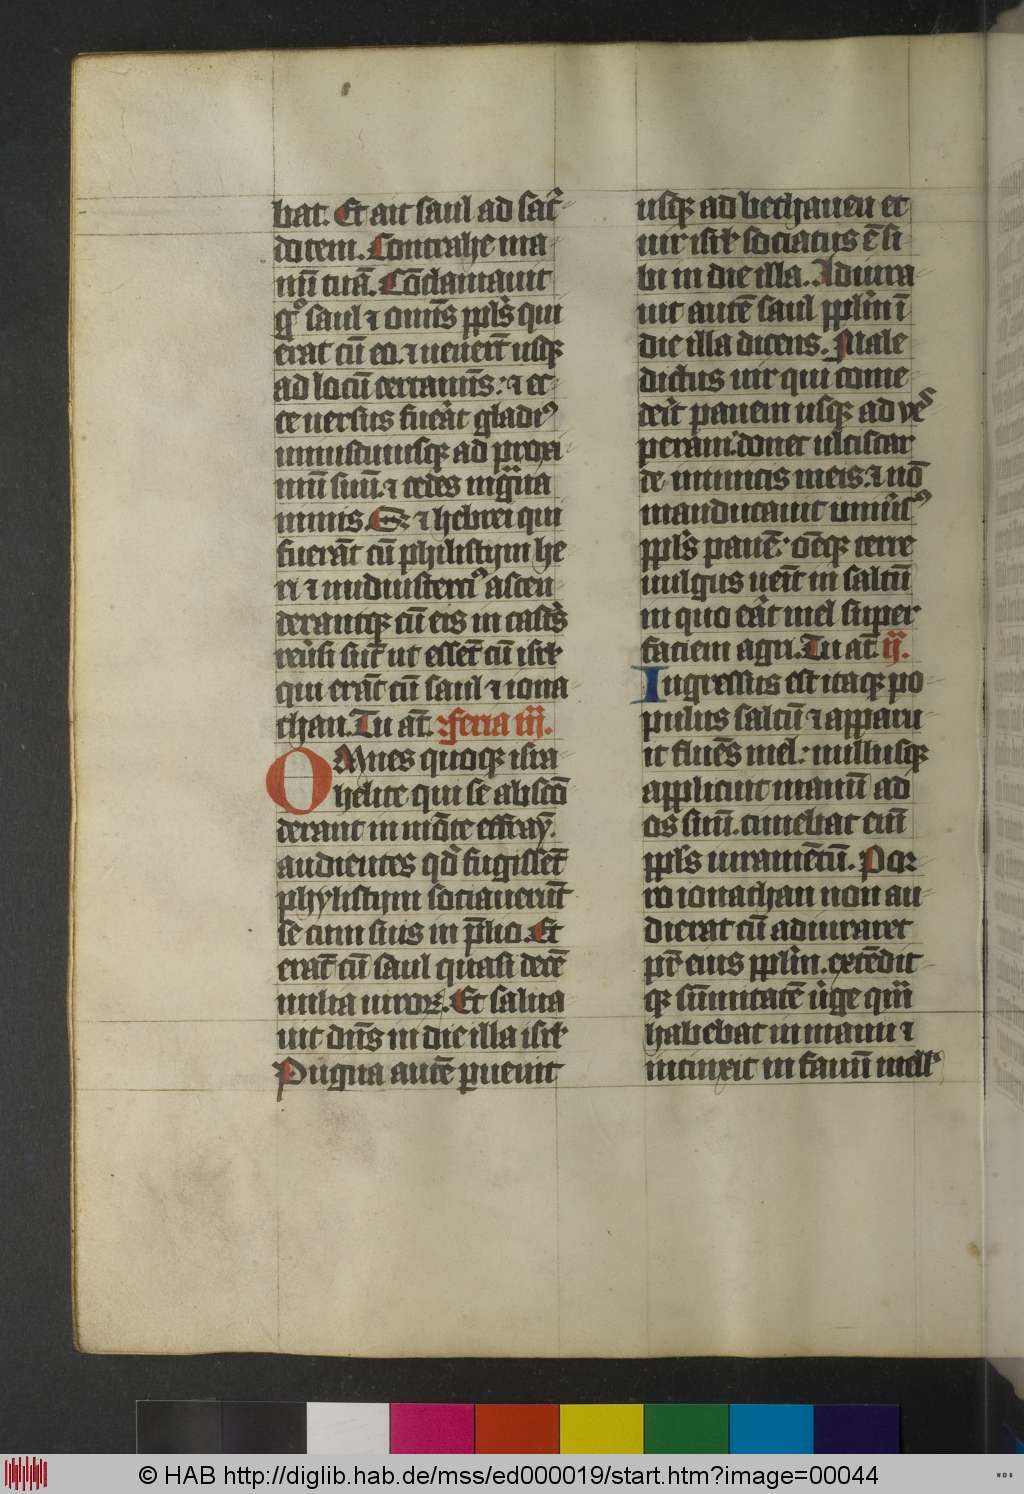 bat. Et ait saul ad sac̄-
dotem. Contrahe ma
nū tuā. Cōclamauit
gͦ saul ⁊ omīs ppl̄s qui
erat cū eo. ⁊ uenert̄ usqꝫ
ad locū certamīs: ⁊ ec-
ce uersus fuerāt gladiꝰ
uniuscuiusqꝫ ad proxi-
mū suū. ⁊ cedes magna
nimis. Sꝫ ⁊ hebrei qui
fuerāt cū philistijm he
ri ⁊ nudiusterciꝰ ascen-
derantqꝫ cū eis in castrꝭ
reūsi sūt ut essēt cū isrl̄
qui erāt cū saul ⁊ iona
than. Tu aūt. feria iij.
OMnes quoqꝫ isra-
helite qui se abscō
derant in mōte effraȳ.
audientes qd̄ fugissēt
phylistijm sociauerūt
se cum suis in p̄lio. Et
erāt cū saul quasi decē
milia uiroꝝ. Et salua
uit dn̄s in die illa isrl̄
Pugna autē ꝑuenit
usqꝫ ad bethauen et
uir isrl̄ sociatus ē si
bi in die illa. Adiura
uit autē saul pplm̄ ī
die illa dicens. Male
dictus uir qui come-
derit panem usqꝫ ad ves
peram. donec ulciscar
de inimicis meis. ⁊ nō
manducauit uniūsꝰ
ppl̄s panē: omēqꝫ terre
uulgus uēit in saltū
in quo erat mel super
faciem agri. Tu aūt. ij.
Ingressus est itaqꝫ po-
pulus saltū ⁊ apparu-
it fluēs mel: nullusqꝫ
applicuit manū ad
os suū. timebat enī
ppl̄s iuramētū. Por-
ro ionathan non au-
dierat cū adiuraret
pr̄ eius pplm̄. extēdit-
qꝫ sūmitatē uirge quā
habebat in manu ⁊
intinxit in fauū mell̄
© HAB http://diglib.hab.de/mss/ed000019/start.htm?image=00044